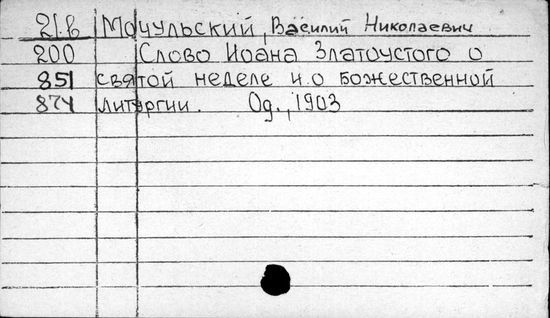 21.в Мочульский, Василий Николаевич
200 Слово Иоана Златоустого о
851 святой неделе и.о божественной
874 литургии. Од., 1903